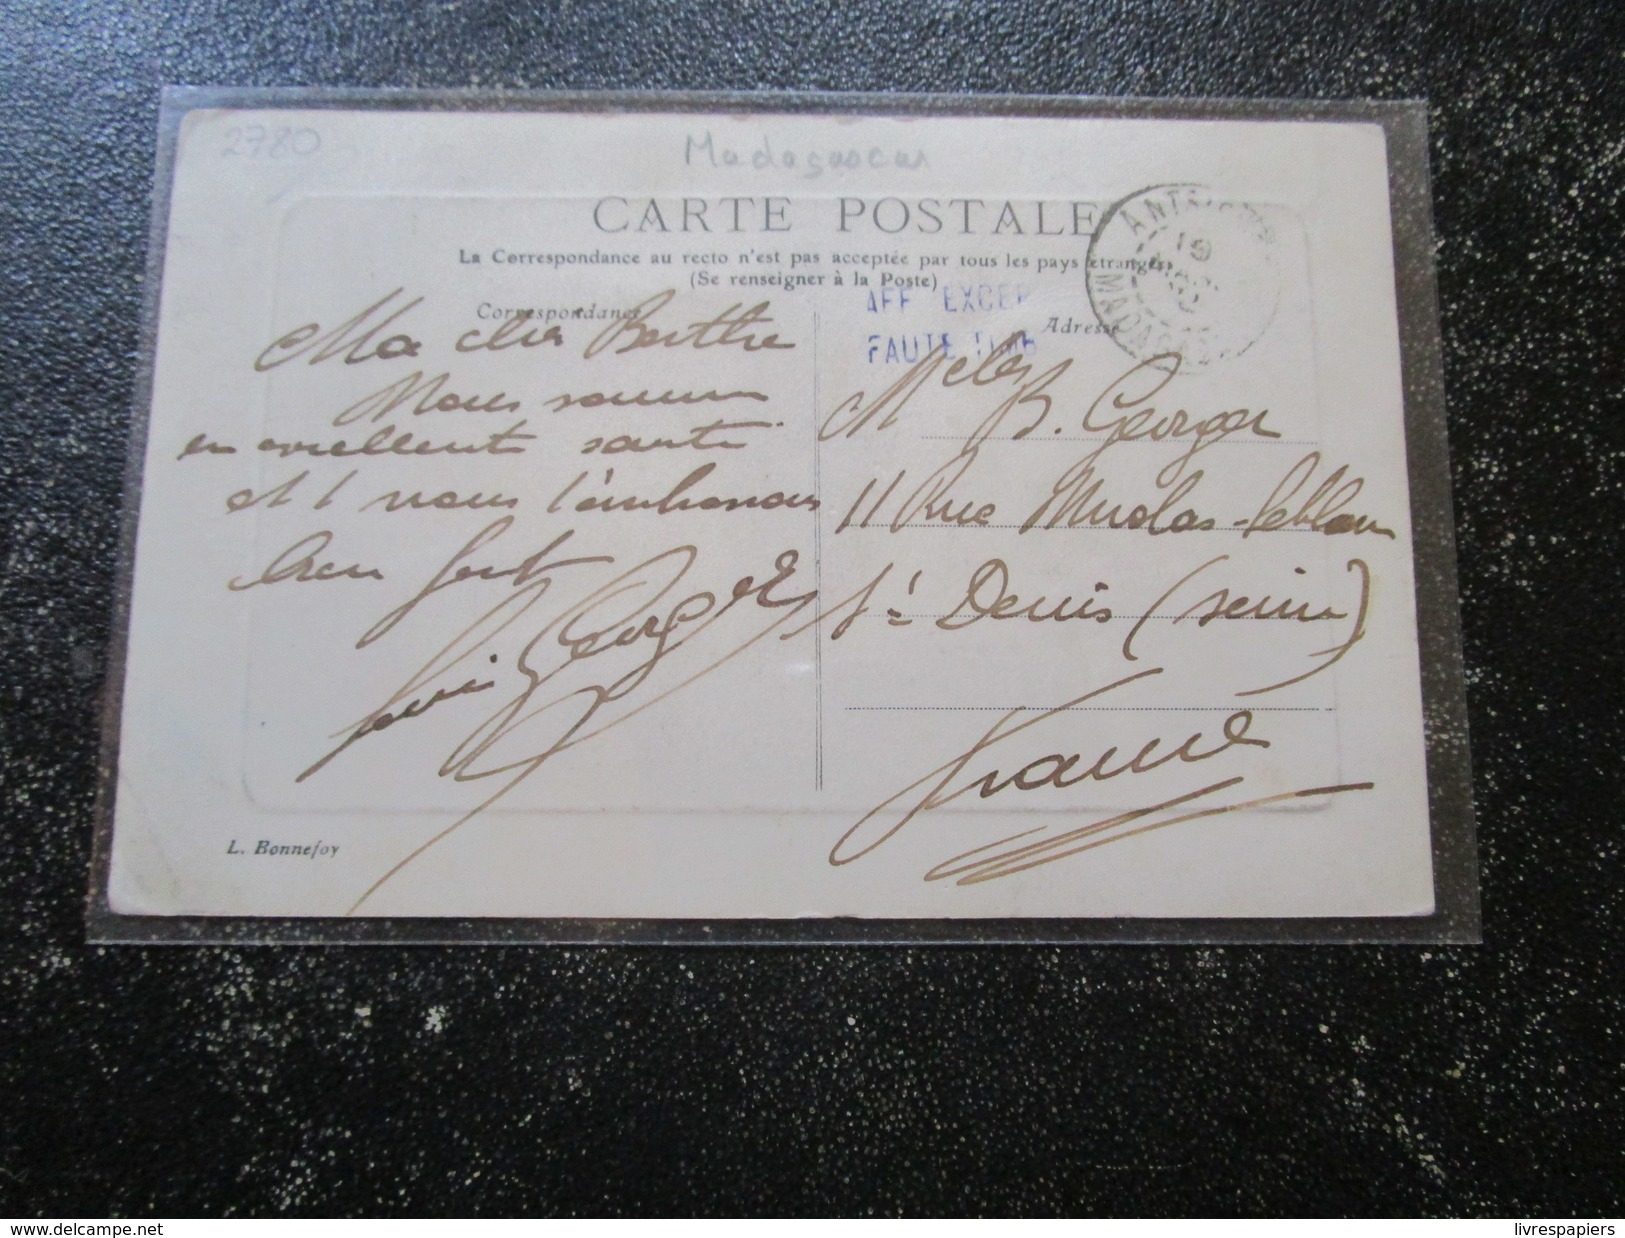 2780
Madagascar
CARTE POSTALE
La Correspondance au recto n'est pas acceptée par tous les pays étrangers
(Se renseigner à la Poste)
Correspondance
Ma chère Berthe
Nous sommes
en excellente santé
et nous t'embrassons
bien fort
Georges
L. Bonnefoy
AFF EXCEP
FAUTE TIMB
Adresse
ANTSIRABE
19
MADAGASCAR
Melle
B. Georges
11 Rue Nicolas-leblanc
St Denis (Seine)
France
livrespapiers
delcampe.net